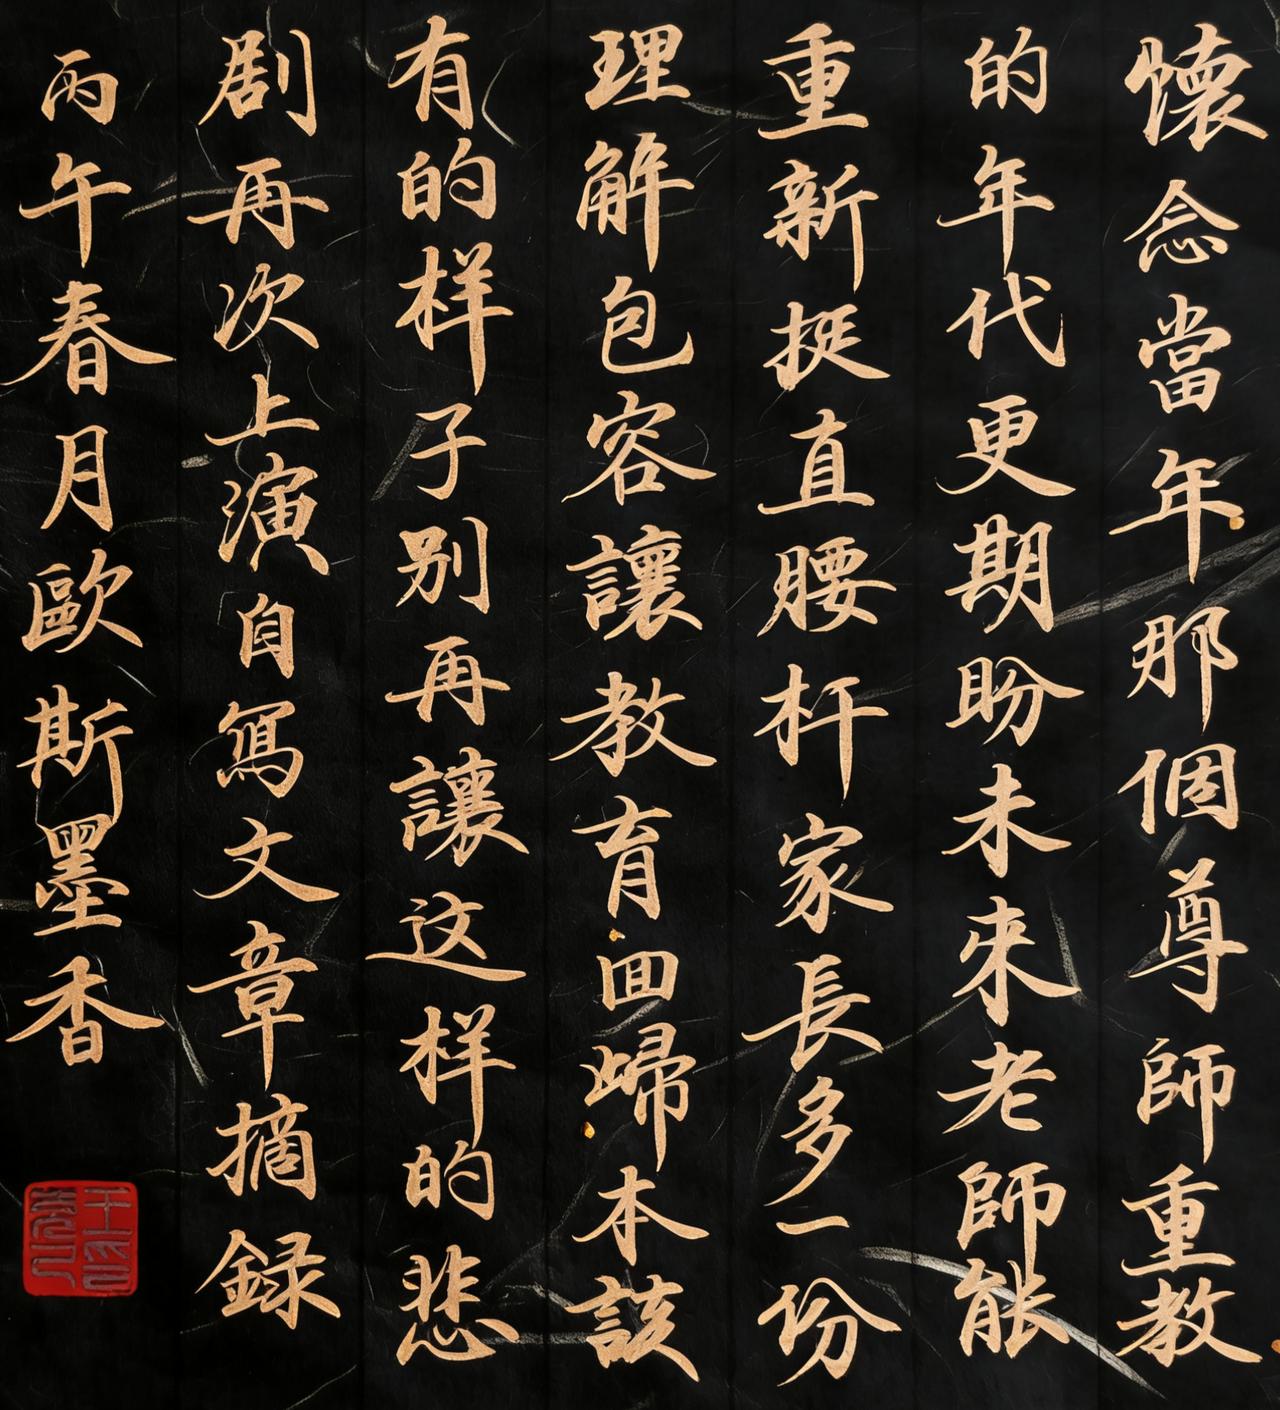 懷念當年那個尊師重教
的年代更期盼未來老師能
重新挺直腰杆家長多一份
理解包容讓教育回歸本該
有的样子别再讓这样的悲
剧再次上演自寫文章摘録
丙午春月歐斯墨香